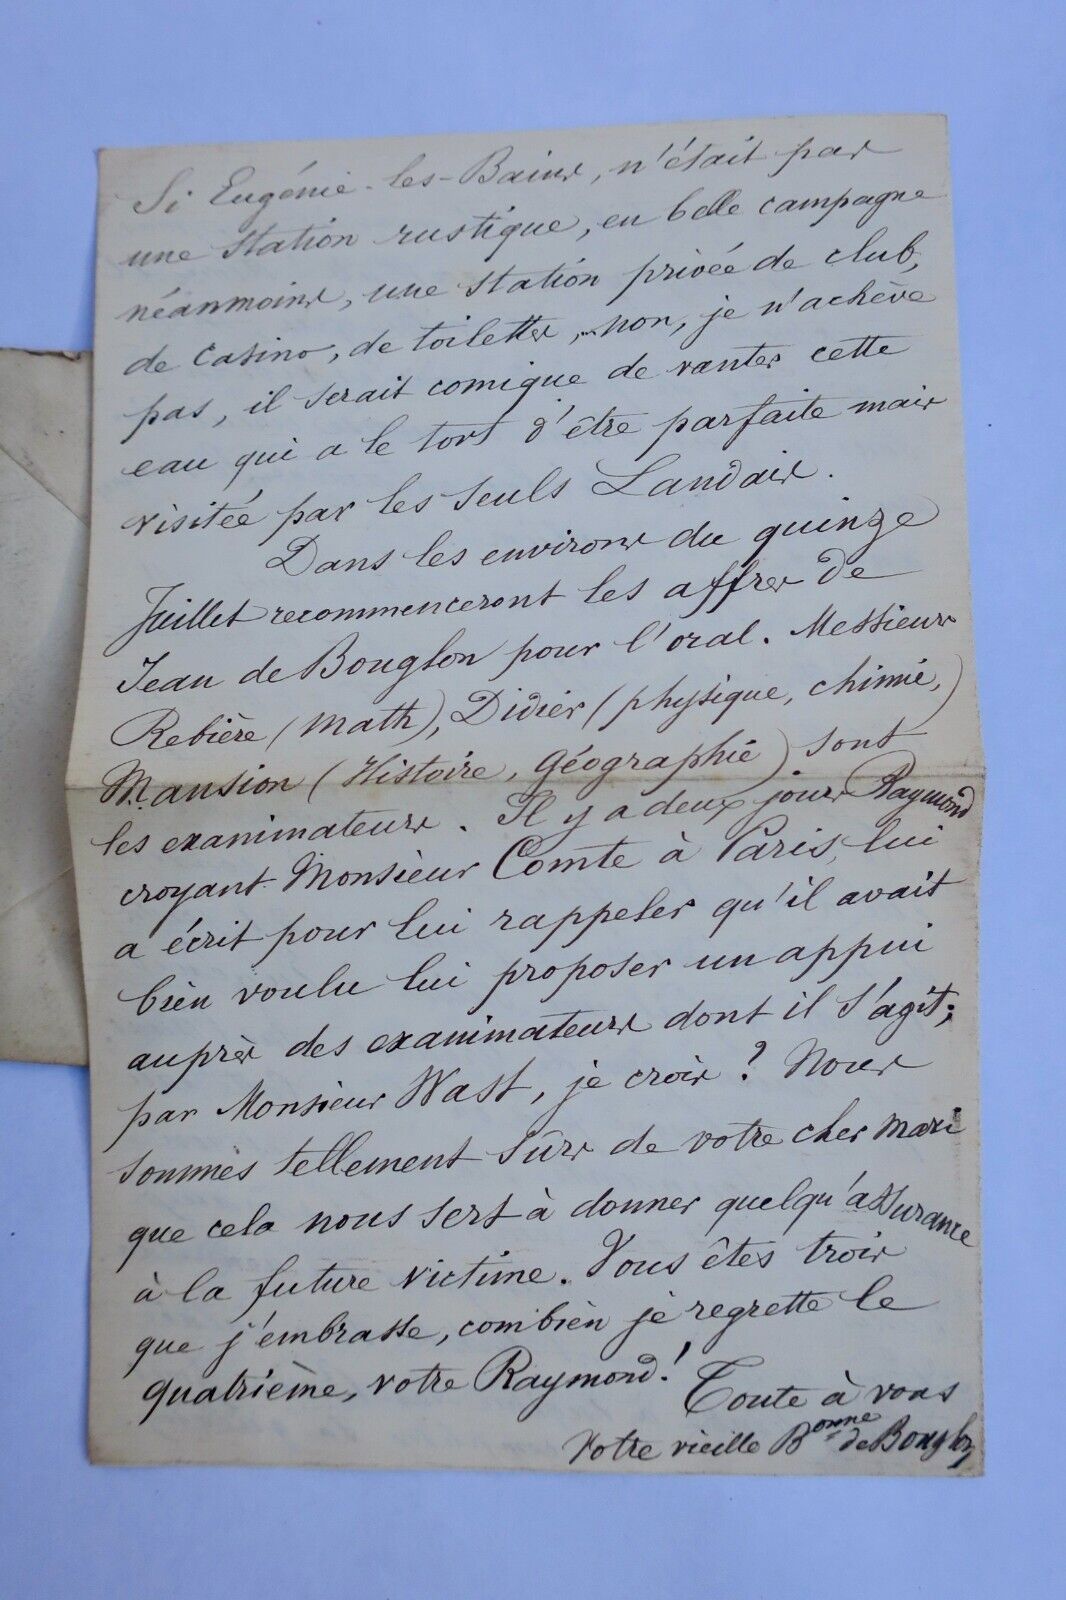 Si Eugénie-les-Bains, n'était pas
une station rustique, en belle campagne
néanmoins, une station privée de club,
de casino, de toilettes, non, je n'achève
pas, il serait comique de vanter cette
eau qui a le tort d'être parfaite mais
visitée par les seuls Landais.
Dans les environs du quinze
Juillet recommenceront les affres de
Jean de Bouglon pour l'oral. Messieurs
Rebière (Math), Didier (physique, chimie,)
M. Mansion (Histoire, géographie) sont
les examinateurs. Il y a deux jours Raymond
croyant Monsieur Comte à Paris, lui
a écrit pour lui rappeler qu'il avait
bien voulu lui proposer un appui
auprès des examinateurs dont il s'agit;
par Monsieur Wast, je crois? Nous
sommes tellement sûrs de votre cher mari
que cela nous sert à donner quelqu'assurance
à la future victime. Vous êtes trois
que j'embrasse, combien je regrette le
quatrième, votre Raymond! Toute à vous
Votre vieille Bonne de Bouglon